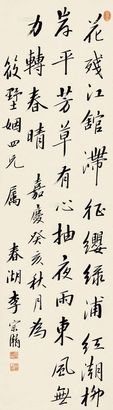 花殘江館滯征纓綠浦紅湖柳
岸平芳草有心抽夜雨東風無
力轉春晴 嘉慶癸亥秋月為
筱墅姻四兄屬 春湖李宗瀚